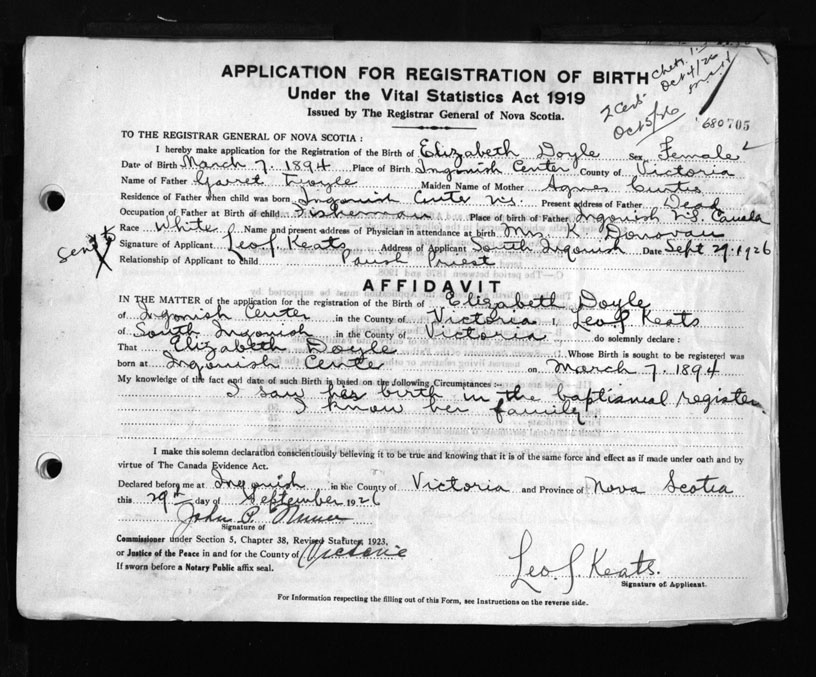 APPLICATION FOR REGISTRATION OF BIRTH
Under the Vital Statistics Act 1919
Issued by The Registrar General of Nova Scotia.
Oct 4/26
2 Cert
Oct 5/26
680705
TO THE REGISTRAR GENERAL OF NOVA SCOTIA :
I hereby make application for the Registration of the Birth of Elizabeth Doyle Sex Female
Date of Birth March 7. 1894 Place of Birth Ingonish Center County of Victoria
Name of Father Garret Doyle Maiden Name of Mother Agnes Curtis
Residence of Father when child was born Ingonish Center N.S. Present address of Father Dead
Occupation of Father at Birth of child Fisherman Place of birth of Father Ingonish N.S. Canada
Race White Name and present address of Physician in attendance at birth Mrs. K. Donovan
Sent
Signature of Applicant Leo J. Keats Address of Applicant South Ingonish Date Sept 29. 1926
Relationship of Applicant to child Parish Priest
AFFIDAVIT
IN THE MATTER of the application for the registration of the Birth of Elizabeth Doyle
of Ingonish Center in the County of Victoria I, Leo J Keats
of South Ingonish in the County of Victoria do solemnly declare :
That Elizabeth Doyle Whose Birth is sought to be registered was
born at Ingonish Center on March 7. 1894
My knowledge of the fact and date of such Birth is based on the following Circumstances :-
I saw her birth in the baptismal register.
I know her family.
I make this solemn declaration conscientiously believing it to be true and knowing that it is of the same force and effect as if made under oath and by
virtue of The Canada Evidence Act.
Declared before me at Ingonish in the County of Victoria and Province of Nova Scotia
this 29th day of September 1926
John P.
Signature of
Commissioner under Section 5, Chapter 38, Revised Statutes, 1923,
or Justice of the Peace in and for the County of Victoria
If sworn before a Notary Public affix seal.
Leo. J. Keats.
Signature of Applicant.
For Information respecting the filling out of this Form, see Instructions on the reverse side.